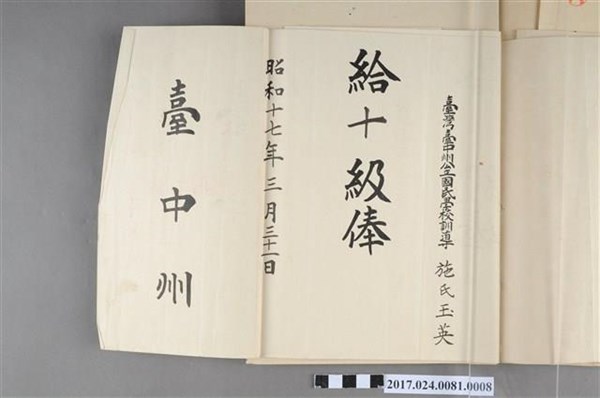 臺灣臺中州公立國民學校訓導
施氏玉英
給十級俸
昭和十七年三月三十一日
臺中州
2017.024.0081.0008